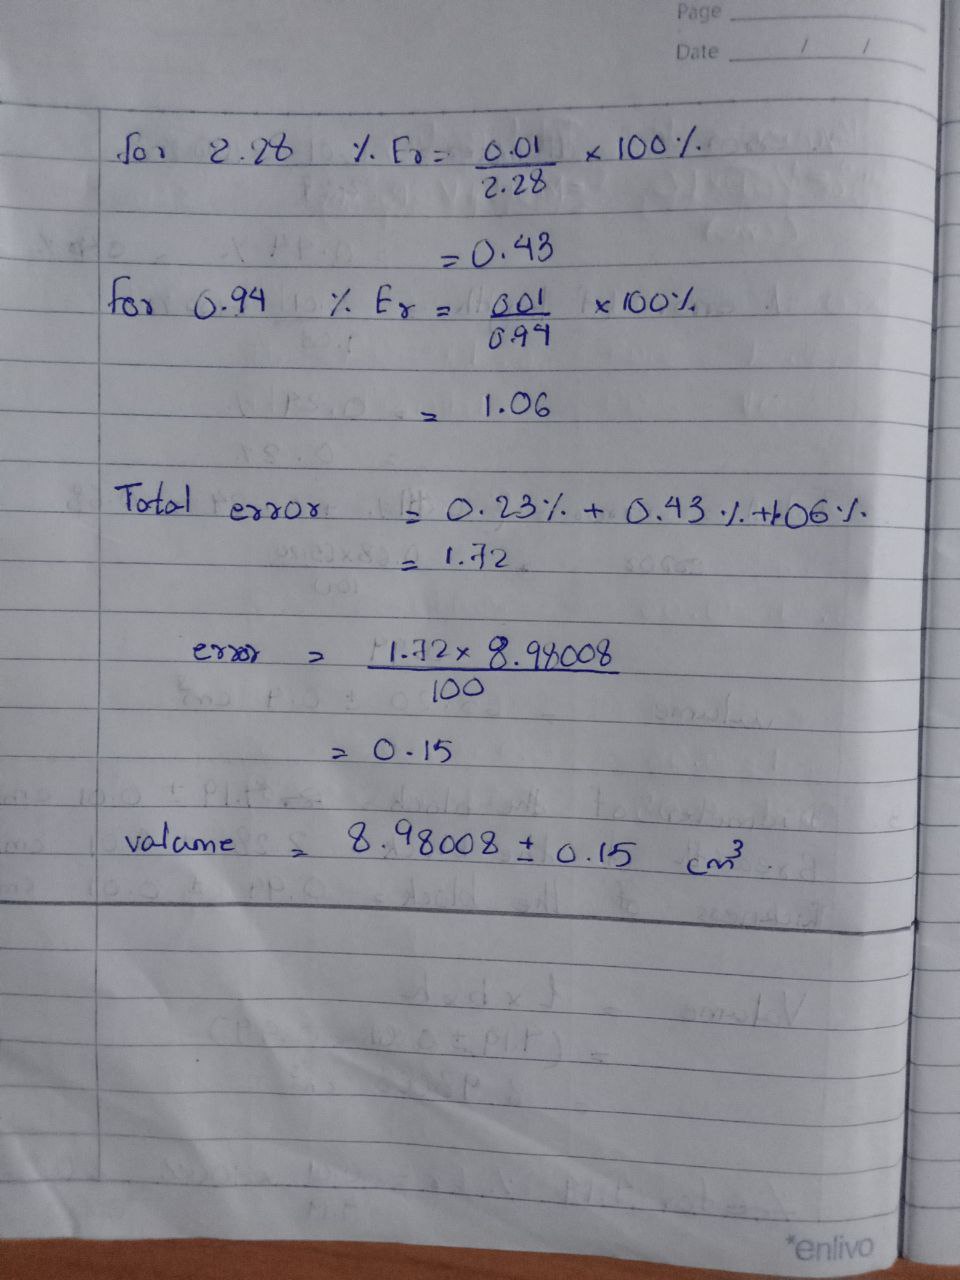 Page
Date / /
for 2.28 % Er = 0.01 / 2.28 × 100%
= 0.43
for 0.94 % Er = 0.01 / 0.94 × 100%
= 1.06
Total error = 0.23% + 0.43 % + 1.06 %
= 1.72
error = 1.72 × 8.98008 / 100
= 0.15
volume = 8.98008 ± 0.15 cm³
*enlivo